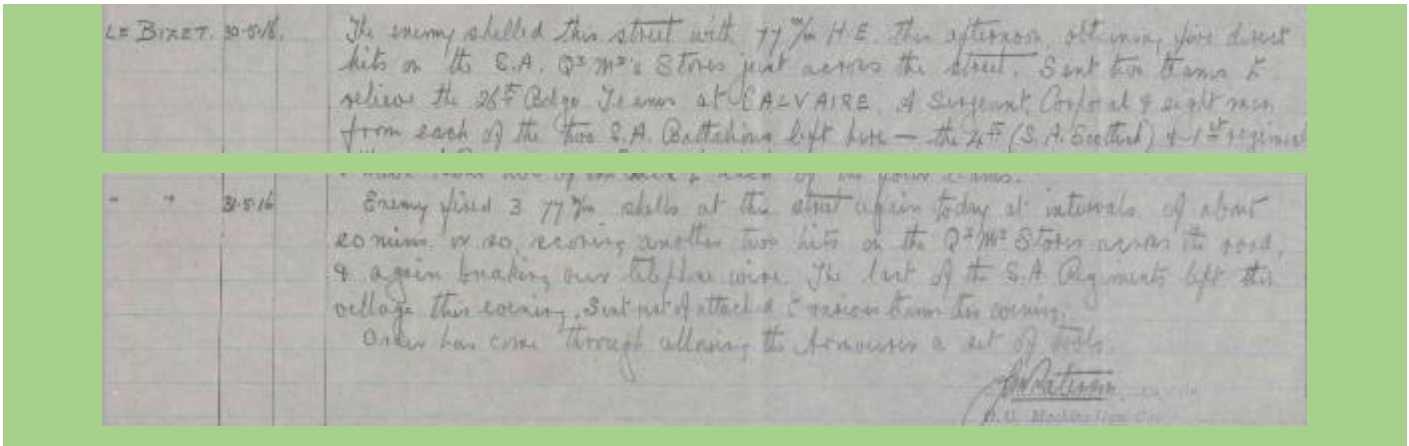 LE BIZET. 30-5-16. The enemy shelled this street with 77 m/m H.E. this afternoon, obtaining five direct
hits on the S.A. Qr Mr's Stores just across the street. Sent two teams to
relieve the 26th Bdge Teams at CALVAIRE. A Sergeant, Corporal & eight men
from each of the two S.A. Battalions left here — the 4th (S.A. Scottish) & 1st regiment
" " 31.5.16 Enemy fired 3 77 m/m shells at this street again today at intervals of about
20 mins. or so, scoring another two hits on the Qr Mr Stores across the road,
& again breaking our telephone wire. The last of the S.A. Regiments left this
village this evening. Sent rest of attached to various teams this evening.
Order has come through allowing the Armourer a set of tools.
Paterson
O.C. Machine Gun Co